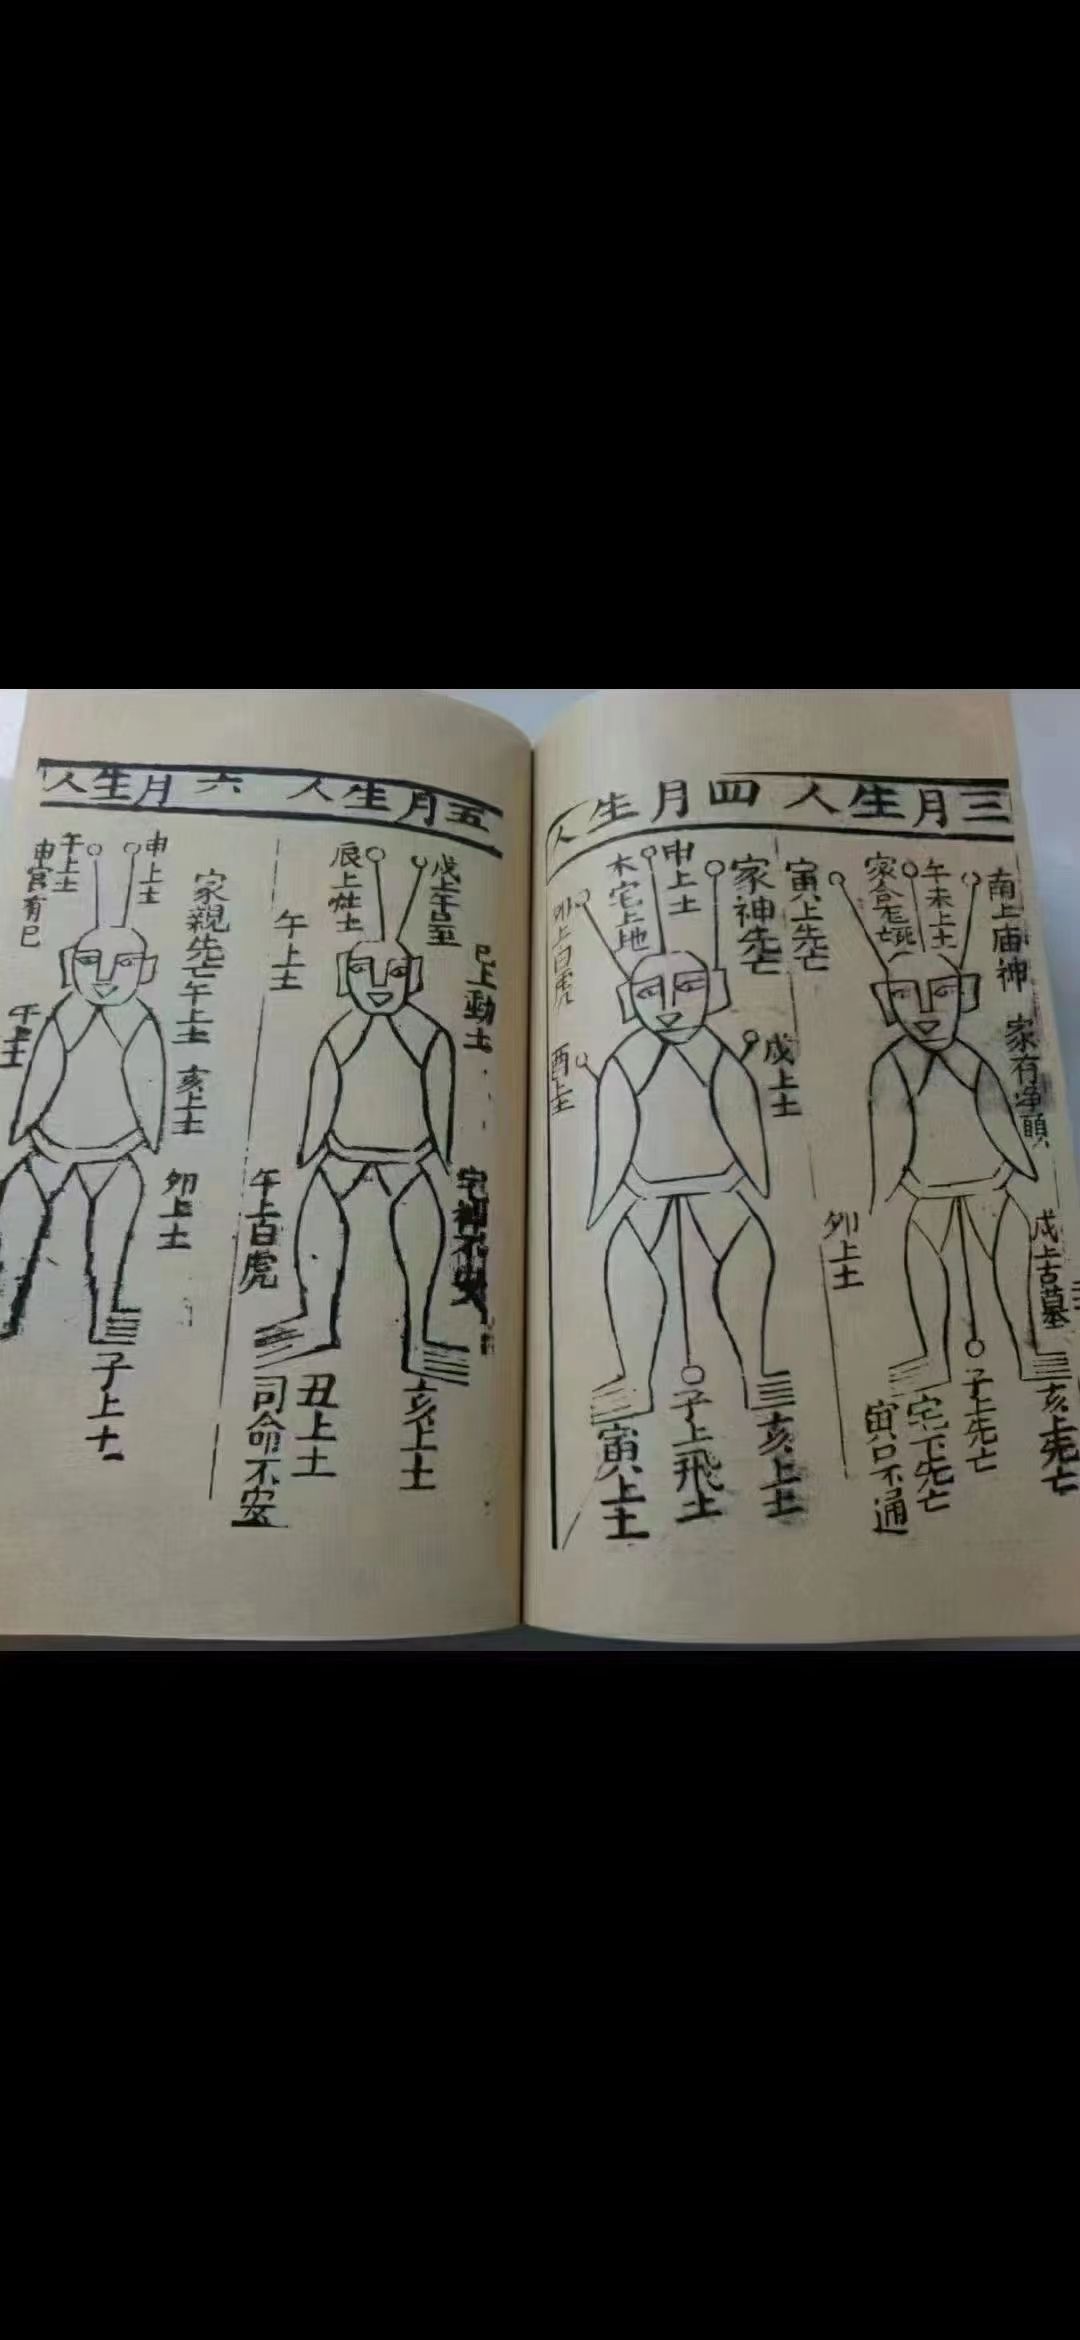 三月生人
南上庙神
家有
午未上土
家合
寅上先亡
戌上古墓
卯上土
亥上先亡
子上先亡
宅下先亡
寅口不通
四月生人
家神先亡
申上土
木宅上地
卯上白虎
戌上土
酉上土
亥上土
子上飛土
寅上土
五月生人
戌上
巳上動土
辰上灶土
午上土
宅神不安
午上白虎
亥上土
丑上土
司命不安
六月生人
家親先亡
申上土
午上土
申宫有巳
午上土
亥上土
午上土
卯上土
子上土